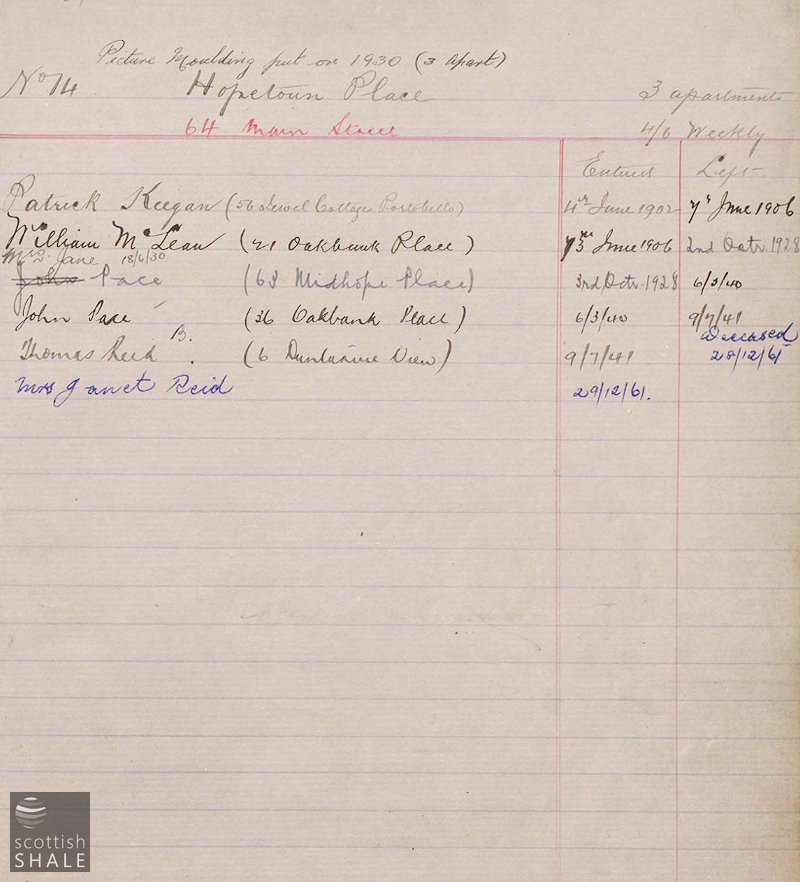 Picture Moulding put on 1930 (3 Apart)
No 14 Hopetoun Place 3 apartments
64 Main Street 4/6 Weekly
Entered Left
Patrick Keegan (56 Jewel Cottage Portobello) 4th June 1902 7th June 1906
William McLean (21 Oakbank Place) June 1906 2nd Octr. 1928
Mrs Jane 18/6/30
John Pace (63 Midhope Place) 3rd Octr. 1928 6/3/40
John Pace (36 Oakbank Place) 6/3/40 9/7/41
B. Deceased
Thomas Reid (6 Duntarvie View) 9/7/41 28/12/61
Mrs Janet Reid 29/12/61.
scottish
SHALE